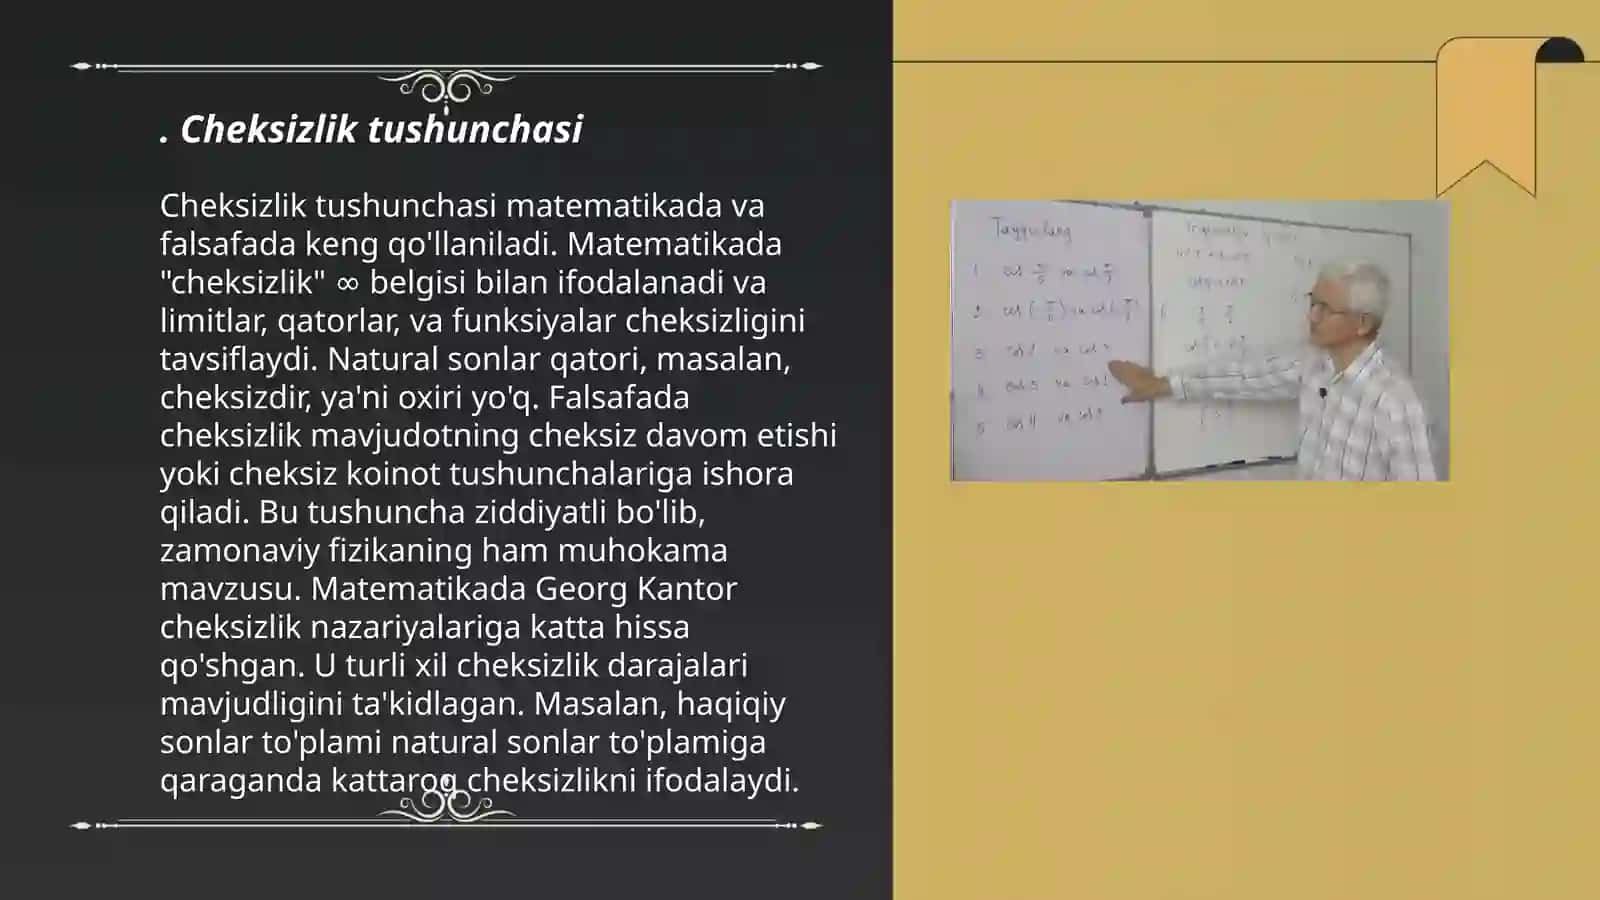 . Cheksizlik tushunchasi
Cheksizlik tushunchasi matematikada va
falsafada keng qo'llaniladi. Matematikada
"cheksizlik" ∞ belgisi bilan ifodalanadi va
limitlar, qatorlar, va funksiyalar cheksizligini
tavsiflaydi. Natural sonlar qatori, masalan,
cheksizdir, ya'ni oxiri yo'q. Falsafada
cheksizlik mavjudotning cheksiz davom etishi
yoki cheksiz koinot tushunchalariga ishora
qiladi. Bu tushuncha ziddiyatli bo'lib,
zamonaviy fizikaning ham muhokama
mavzusu. Matematikada Georg Kantor
cheksizlik nazariyalariga katta hissa
qo'shgan. U turli xil cheksizlik darajalari
mavjudligini ta'kidlagan. Masalan, haqiqiy
sonlar to'plami natural sonlar to'plamiga
qaraganda kattaroq cheksizlikni ifodalaydi.